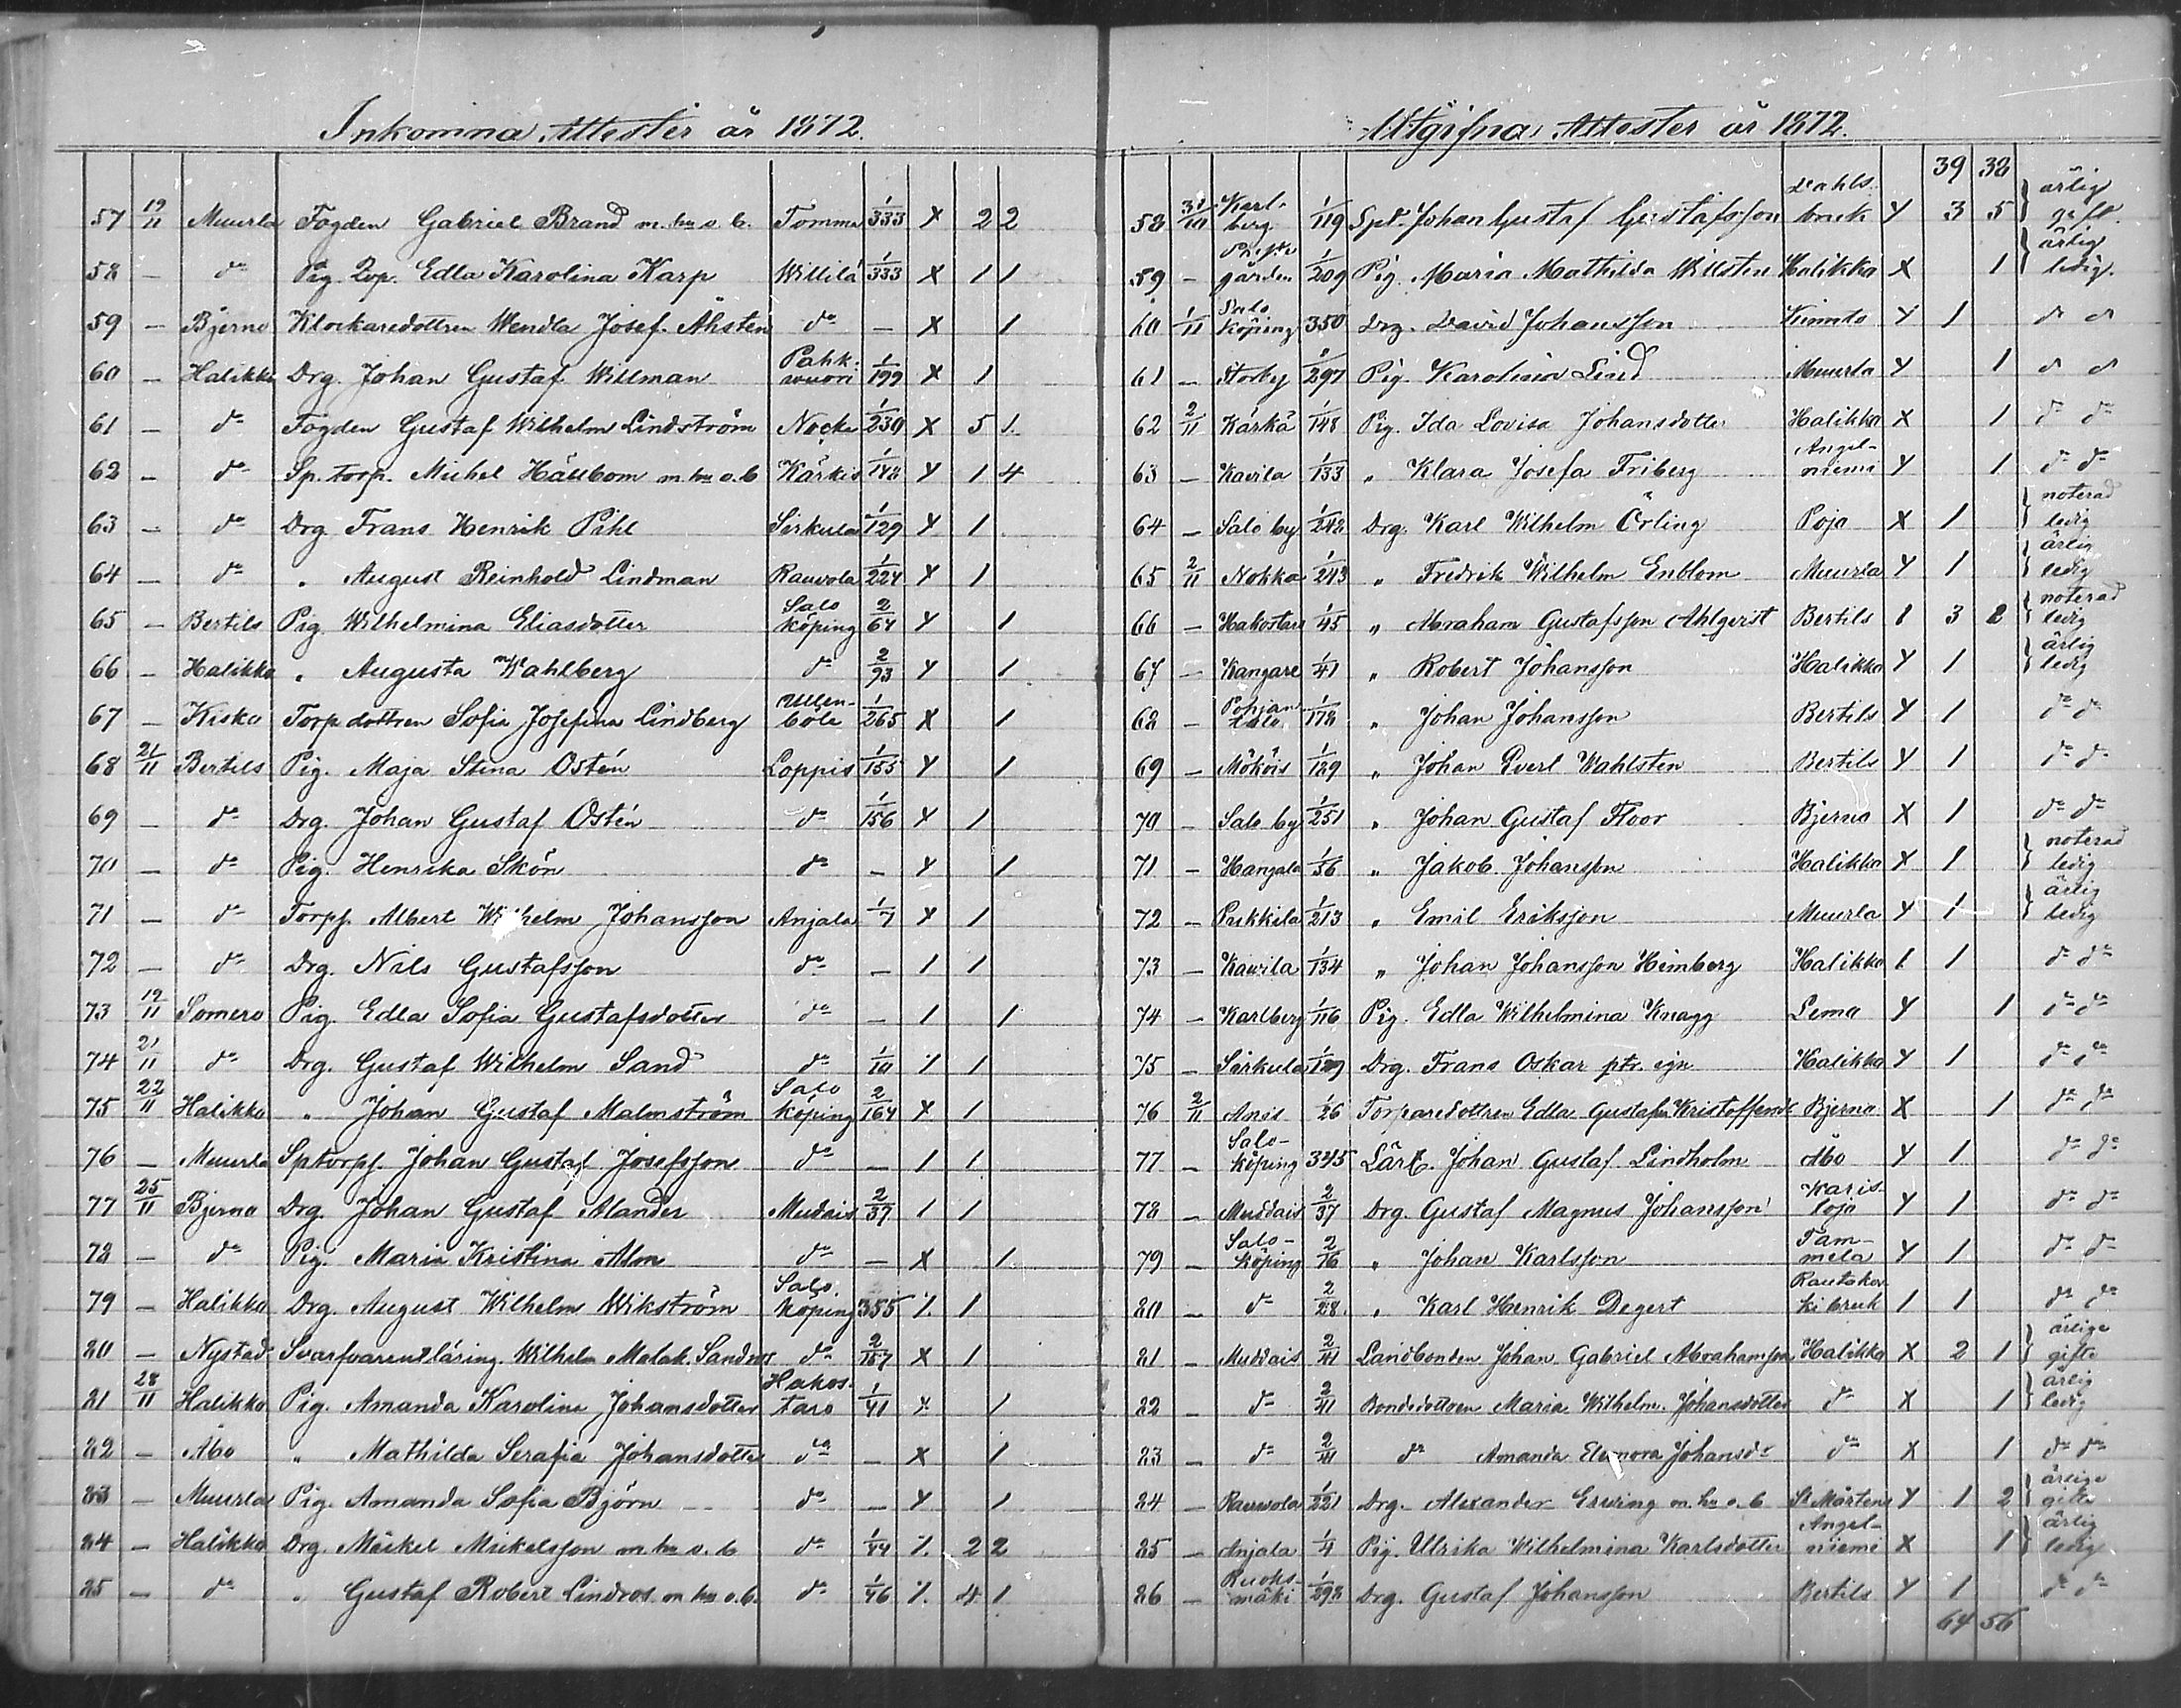 Inkomna Attester år 1872.
57 19/11 Muurla Fogden Gabriel Brand m. hu o. b. Tomma 1/333 X 2 2
58 — do Pig. Edla Karolina Karp Willilä 1/333 X 1 1
59 — Bjerno Klockaredottren Wendla Josef. Åhsten do — X 1
60 — Halikko Drg. Johan Gustaf Willman Pahkvuori 1/199 X 1
61 — do Fogden Gustaf Wilhelm Lindström Nocka 1/239 X 5 1
62 — do Sp. torp. Michel Hällbom m. hu o. b Kärkis 1/148 Y 1 4
63 — do Drg. Frans Henrik Pihl Sirkula 1/129 Y 1
64 — do " August Reinhold Lindman Rauvola 1/224 Y 1
65 — Bertils Pig. Wilhelmina Eliasdotter Salo köping 2/64 Y 1
66 — Halikko " Augusta Wahlberg do 2/93 Y 1
67 — Kisko Torpdottren Sofia Josefina Lindberg Ullenböle 1/265 X 1
68 21/11 Bertils Pig. Maja Stina Ostén Loppis 1/155 Y 1
69 — do Drg. Johan Gustaf Ostén do 1/156 Y 1
70 — do Pig. Henrika Skön do — Y 1
71 — do Torpf. Albert Wilhelm Johansson Anjala 1/7 Y 1
72 — do Drg. Nils Gustafsson do — 1 1
73 19/11 Somero Pig. Edla Sofia Gustafsdotter do — 1 1
74 21/11 do Drg. Gustaf Wilhelm Sand do 1/10 1 1
75 22/11 Halikko " Johan Gustaf Malmström Salo köping 2/164 Y 1
76 — Muurla Sptorpf. Johan Gustaf Josefsson do — 1 1
77 25/11 Bjerno Drg. Johan Gustaf Alander Muddais 2/37 1 1
78 — do Pig. Maria Kristina Alm do — X 1
79 — Halikko Drg. August Wilhelm Wikström Salo köping 355 1 1
80 — Nystad Svarfvarendläring. Wilhelm Malak. Sandros do 2/157 X 1
81 28/11 Halikko Pig. Amanda Karolina Johansdotter Hakostaro 1/41 Y 1
82 — Åbo " Mathilda Serafia Johansdotter do — X 1
83 — Muurla Pig. Amanda Sofia Björn do — Y 1
84 — Halikko Drg. Mickel Mickelsson m. hu o. b do 1/44 1 2 2
85 — do " Gustaf Robert Lindros m hu o. b. do 1/46 1 4 1
Utgifna Attester år 1872.
39 38
58 31/10 Karlberg 1/119 Spt. Johan Gustaf Gustafsson Dahlsbruk Y 3 5 ärlig gift.
59 — Prestgården 1/209 Pig. Maria Mathilda Willsten Halikko X 1 ärlig ledig.
60 1/11 Salo köping 350 Drg. David Johansson Kimito Y 1 d d
61 — Storby 1/297 Pig. Karolina Lind Muurla Y 1 d d
62 2/11 Kärkä 1/148 Pig. Ida Lovisa Johansdotter Halikko X 1 do do
63 — Kavila 1/133 " Klara Josefa Friberg Angelniemi Y 1 do do
64 — Salo by 1/242 Drg. Karl Wilhelm Örling Pojo X 1 noterad ledig
65 2/11 Nokka 1/243 " Fredrik Wilhelm Enblom Muurla Y 1 ärlig ledig
66 — Hakostaro 1/45 " Abraham Gustafsson Ahlqvist Bertils 1 3 2 noterad ledig
67 — Kangare 1/41 " Robert Johansson Halikko Y 1 ärlig ledig
68 — Pohjantalo 1/178 " Johan Johansson Bertils Y 1 do do
69 — Mököis 1/189 " Johan Evert Wahlsten Bertils Y 1 do do
70 — Salo by 1/251 " Johan Gustaf Floor Bjerno X 1 do do
71 — Hangala 1/56 " Jakob Johansson Halikko X 1 noterad ledig
72 — Pukkila 1/213 " Emil Eriksson Muurla Y 1 ärlig ledig
73 — Kavila 1/134 " Johan Johansson Heimberg Halikko 1 1 do do
74 — Karlberg 1/116 Pig. Edla Wilhelmina Knagg Lemo Y 1 do do
75 — Sirkula 1/129 Drg. Frans Oskar ptr. ign Halikko Y 1 do do
76 2/11 Anis 1/26 Torparedottren Edla Gustafva Kristoffersdr Bjerno X 1 do do
77 — Salo-köping 345 Lärl. Johan Gustaf Lindholm Åbo Y 1 do do
78 — Muddais 2/37 Drg. Gustaf Magnus Johansson Karislojo Y 1 do do
79 — Salo-köping 2/16 " Johan Karlsson Tammela Y 1 do do
80 — do 2/28 " Karl Henrik Degert Rautakoski bruk 1 1 do do
81 — Muddais 2/41 Landbonden Johan Gabriel Abrahamsson Halikko X 2 1 ärlige gifte
82 — do 2/41 Bondedottren Maria Wilhelm. Johansdotter do X 1 ärlig ledig
83 — do 2/41 do Amanda Eleonora Johansdr do X 1 do do
84 — Rauvola 1/221 Drg. Alexander Erving m. hu o. b St Mårtens Y 1 2 ärlige gifte
85 — Anjala 1/4 Pig. Ulrika Wilhelmina Karlsdotter Angelniemi X 1 ärlig ledig
86 — Ruoksmäki 1/298 Drg. Gustaf Johansson Bertils Y 1 do do
64 56